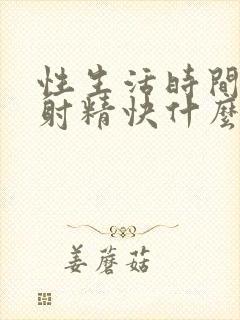 性生活時間
射精快什麼
姜蘑菇